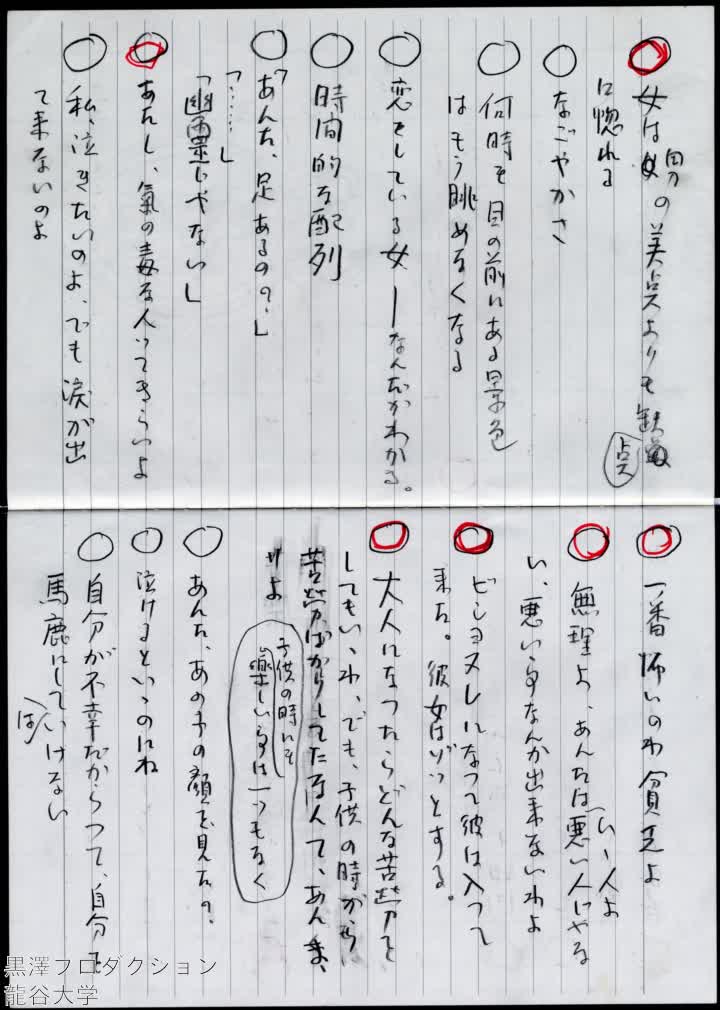 女は男の美点よりも欠点
に惚れる
なごやかさ
何時も目の前にある景色
はもう眺めなくなる
恋をしている女―なんだかわかる。
時間的な配列
「あんた、足あるの?」
「……」
「幽霊じゃない」
あたし、氣の毒な人ってきらいよ
私、泣きたいのよ、でも涙が出
て来ないのよ
一番怖いのわ貧乏よ
無理よ、あんたは悪い人じゃな
いゝ人よ
い、悪い事なんか出来ないわよ
ビショヌレになって彼は入って
来た。彼女はゾッとする。
大人になったらどんな苦労を
してもいゝわ、でも、子供の時から
苦労ばかりしてたなんて、あんま
りよ
子供の時にも
楽しい事は一つもなく
あんた、あの子の顔を見たの?
泣けるといゝのにね
自分が不幸だからって、自分を
馬鹿にしてはいけない
黒澤プロダクション
龍谷大学